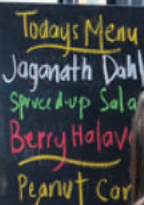 Todays Menu
Jaganath Dahl
Spruced-up Sala
Berry Halav
Peanut Car